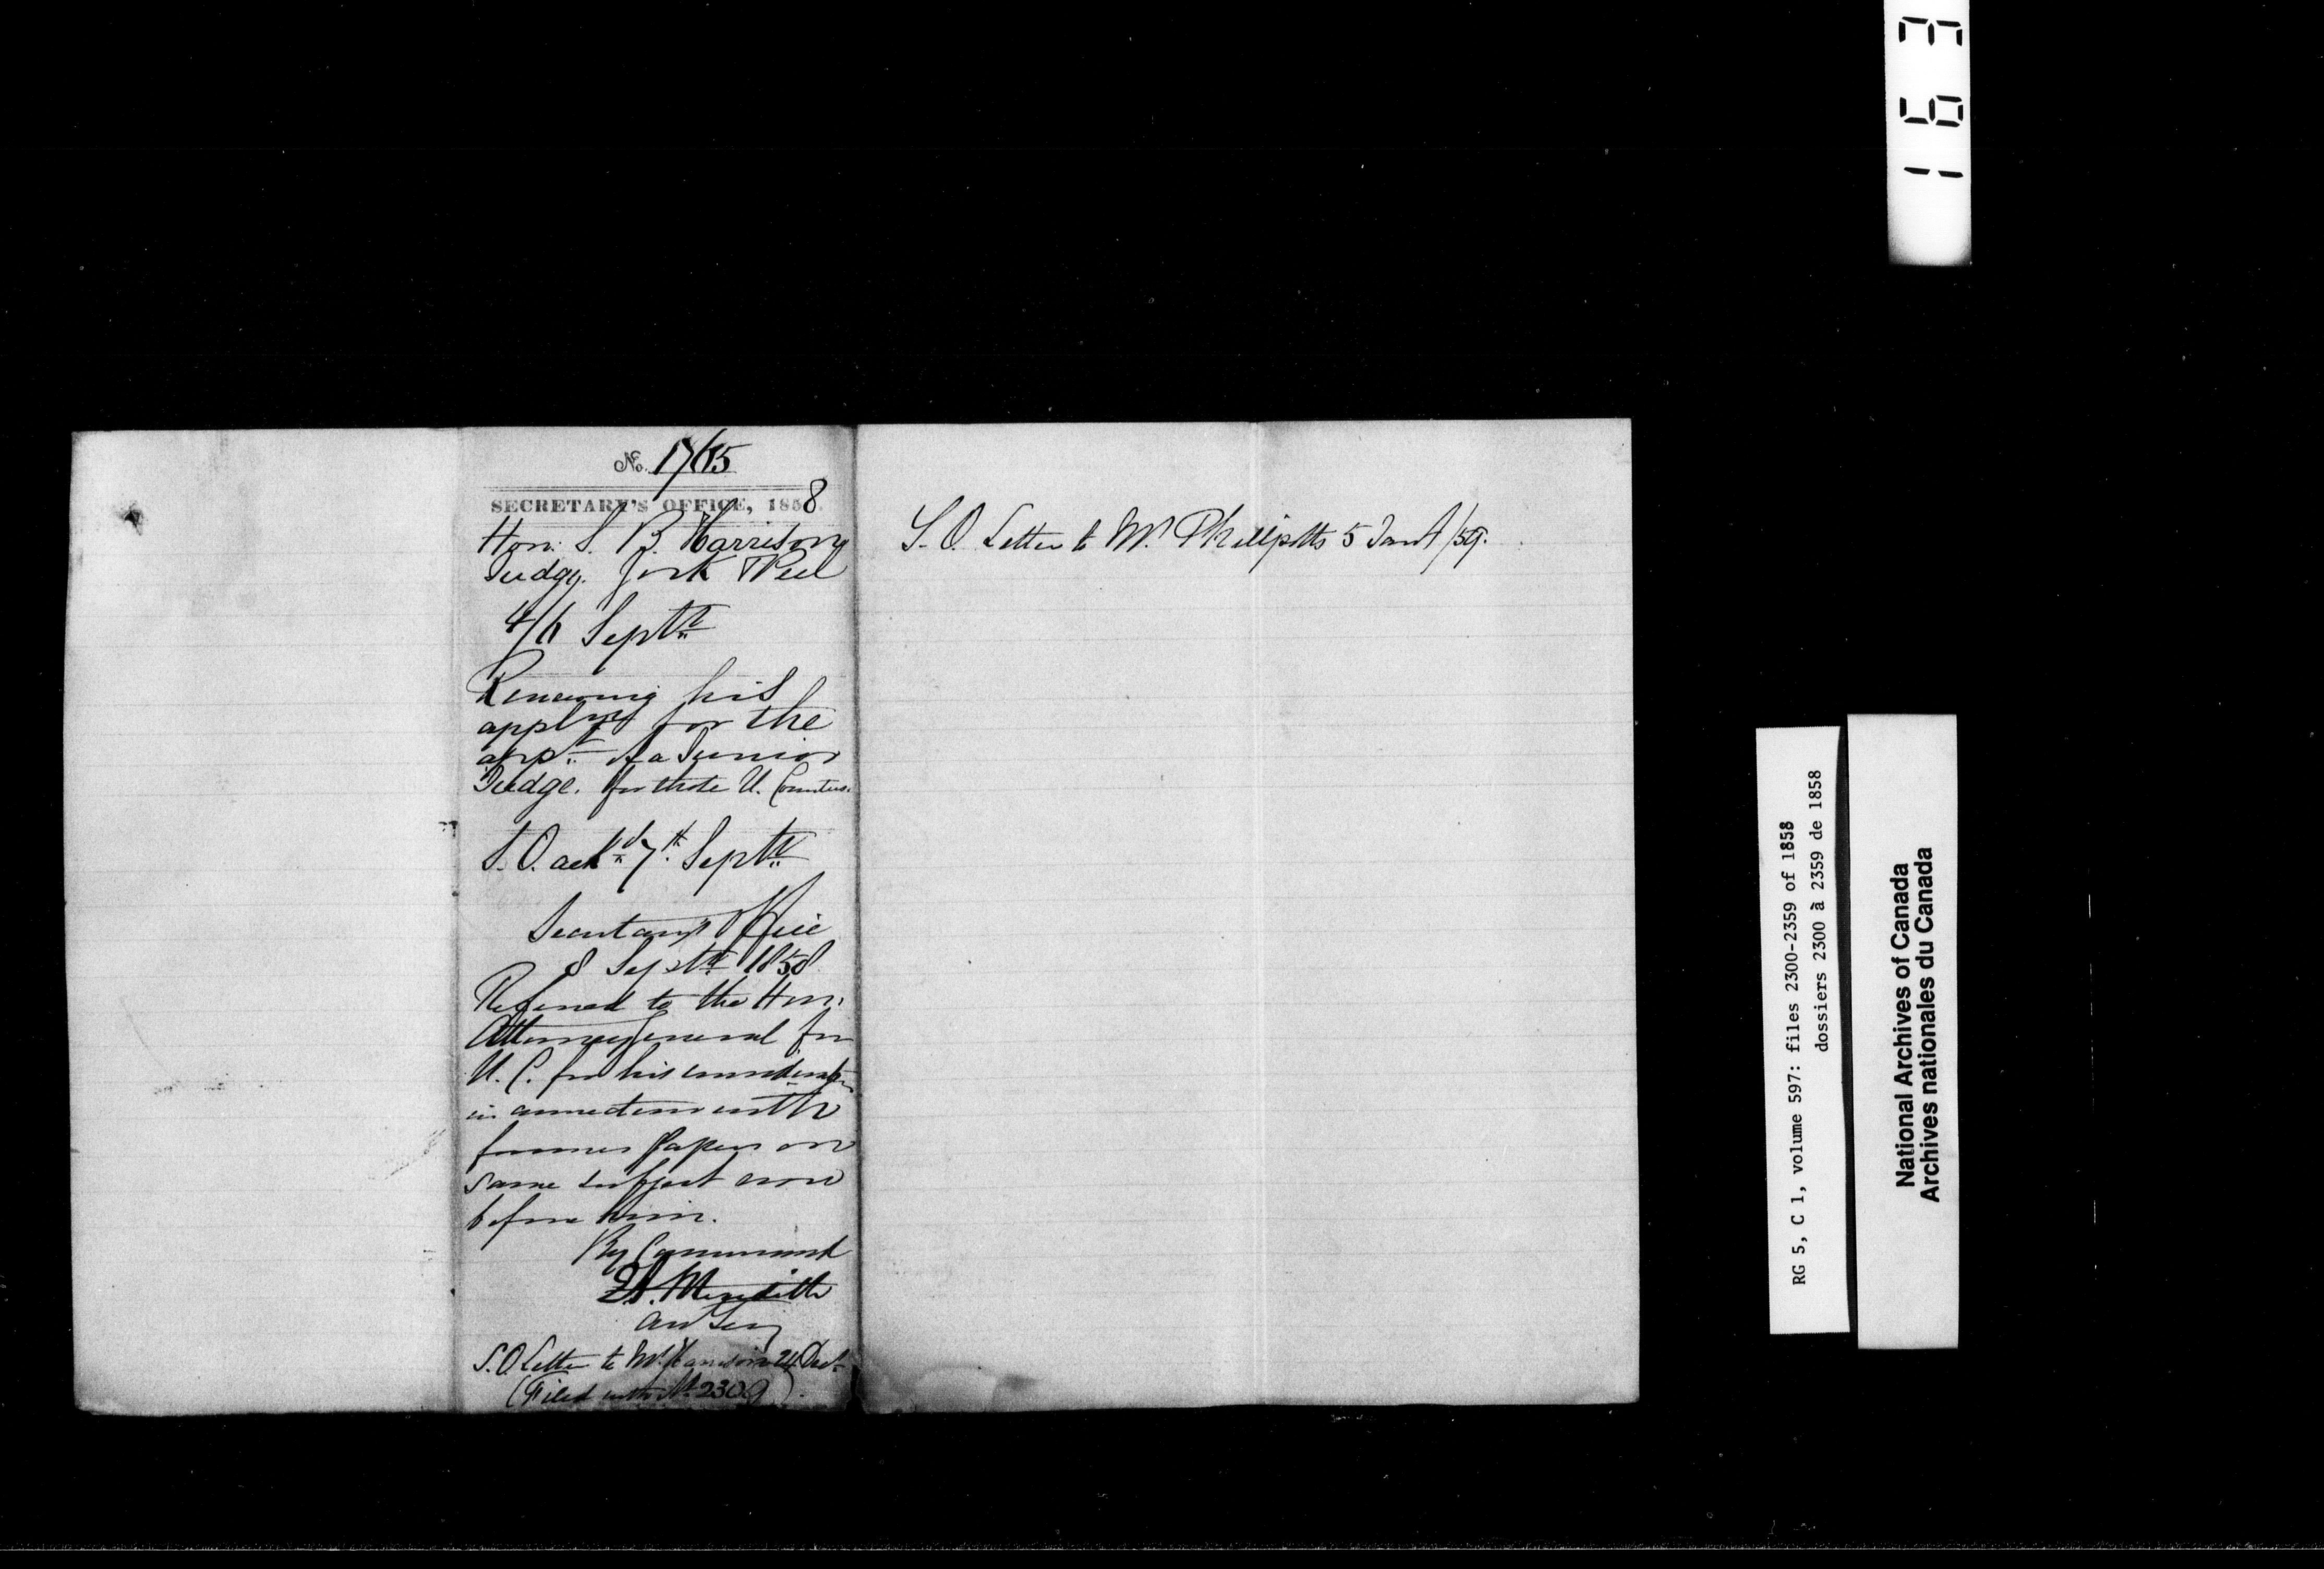 No. 1765
SECRETARY'S OFFICE, 1858
Hon: S. B. Harrison
Judge. York & Peel
4/6 Septr
Renewing his
appln for the
appt of a Junior
Judge. for those U. Counties.
S. O. ackd 7th Septr
Secretary's Office
8 Septr 1858
Referred to the Hon:
Attorney General for
U. C. for his consideration
in connection with
former papers on
same subject now
before him.
By Command
E. A. Meredith
Asst Secy
S. O. Letter to Mr Harrison 24 Decr
(Filed with No 2309).
S. O. Letter to Mr Phillpotts 5 Jany /59.
163
RG 5, C 1, volume 597: files 2300-2359 of 1858
dossiers 2300 à 2359 de 1858
National Archives of Canada
Archives nationales du Canada